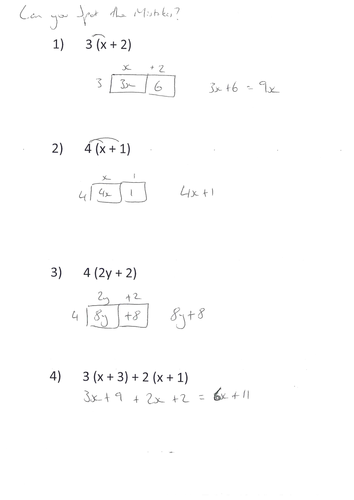 Can you Spot the Mistakes?
1) 3 (x + 2)
x +2
3 3x 6 3x + 6 = 9x
2) 4 (x + 1)
x 1
4 4x 1 4x + 1
3) 4 (2y + 2)
2y +2
4 8y +8 8y + 8
4) 3 (x + 3) + 2 (x + 1)
3x + 9 + 2x + 2 = 6x + 11